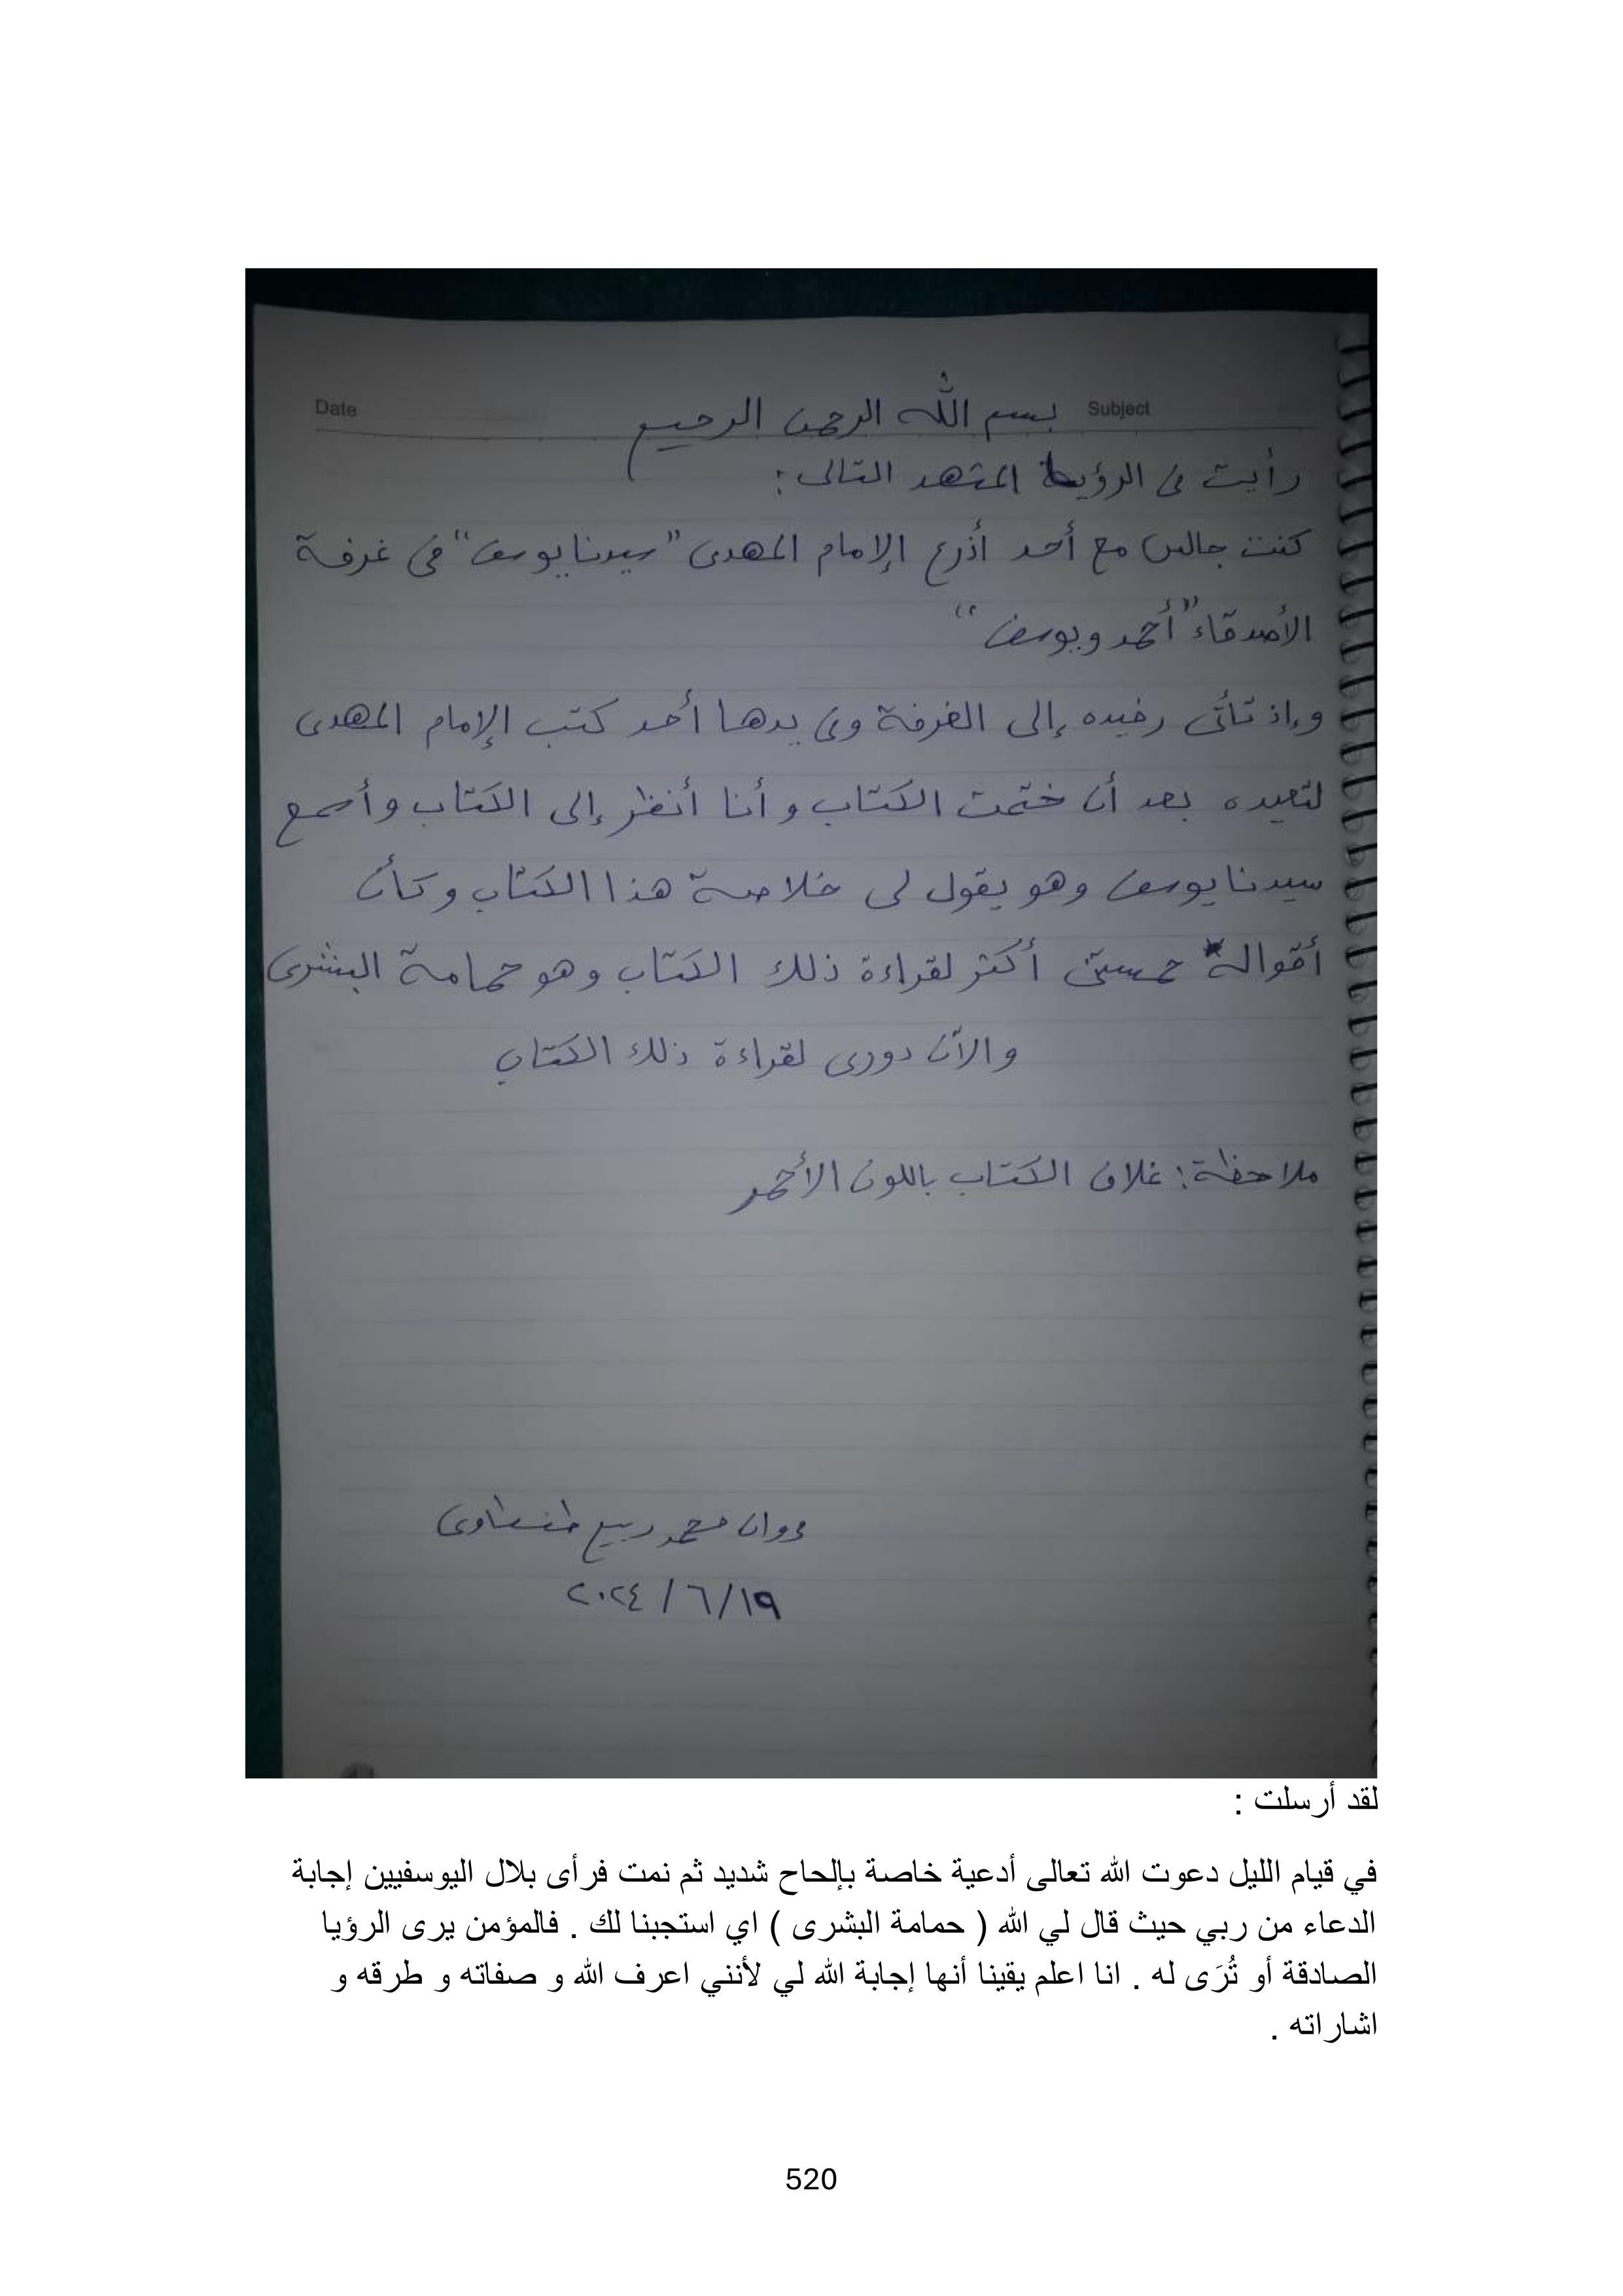 Date
Subject
بسم الله الرحمن الرحيم
رأيت فى الرؤيا المشهد التالى:
كنت جالس مع أحد أذرع الإمام المهدى "سيدنا يوسف" فى غرفة
الأصدقاء "أحمد ويوسف"
وإذ تأتى رفيده إلى الغرفة وفى يدها أحد كتب الإمام المهدى
لتعيده بعد أن ختمت الكتاب وأنا أنظر إلى الكتاب وأسمع
سيدنا يوسف وهو يقول لى خلاصة هذا الكتاب وكأن
أقواله حمستنى أكثر لقراءة ذلك الكتاب وهو حمامة البشرى
والآن دورى لقراءة ذلك الكتاب
ملاحظة: غلاف الكتاب باللون الأحمر
مروان محمد ربيع طنطاوى
١٩/٦/٢٠٢٤
لقد أرسلت :
في قيام الليل دعوت الله تعالى أدعية خاصة بإلحاح شديد ثم نمت فرأى بلال اليوسفيين إجابة
الدعاء من ربي حيث قال لي الله ( حمامة البشرى ) اي استجبنا لك . فالمؤمن يرى الرؤيا
الصادقة أو تُرَى له . انا اعلم يقينا أنها إجابة الله لي لأنني اعرف الله و صفاته و طرقه و
اشاراته .
520